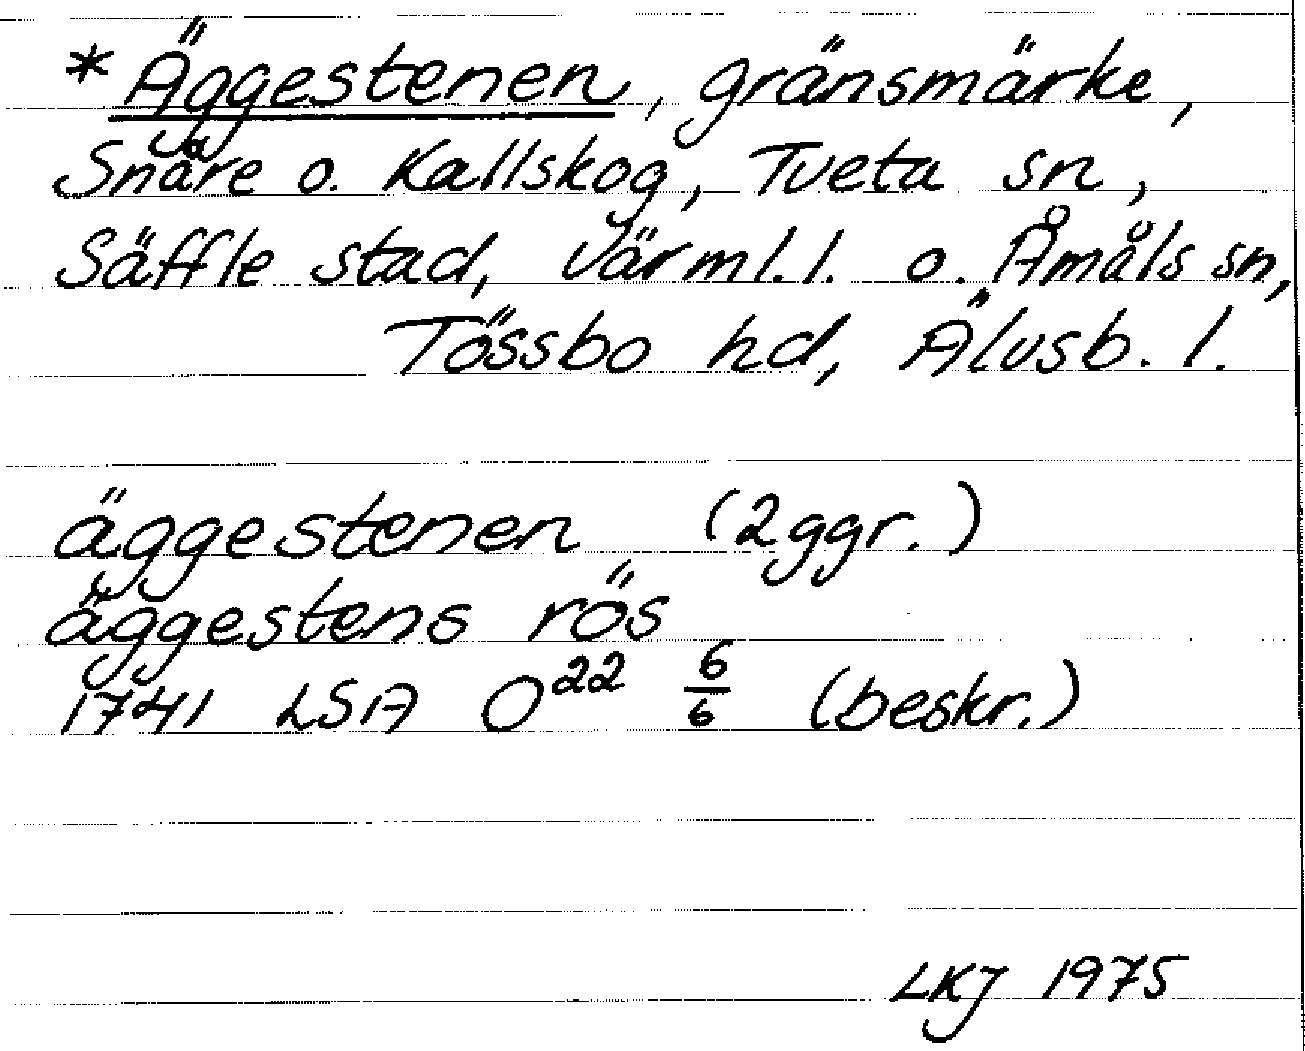 *Äggestenen, gränsmärke,
Snäre o. Kallskog, Tveta sn,
Säffle stad, Värml.l. o. Åmåls sn,
Tössbo hd, Älvsb. l.
äggestenen (2ggr.)
äggestens rös
1741 LSA O²² 6/6 (beskr.)
LKJ 1975